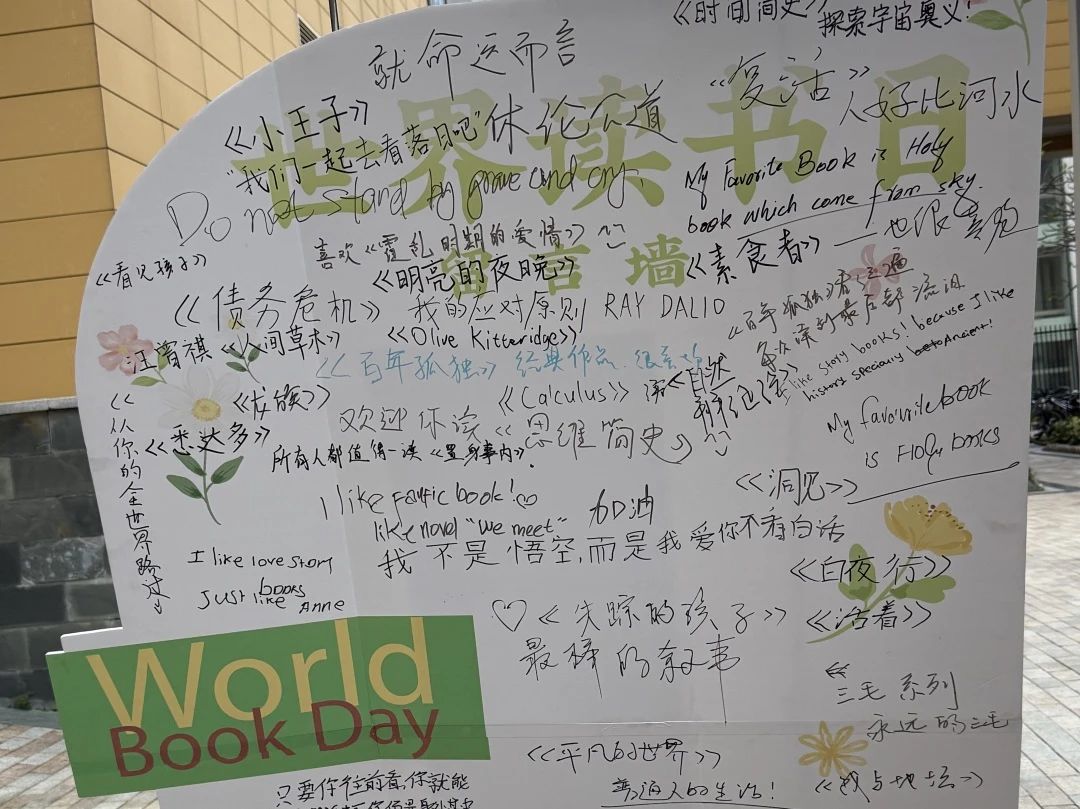 《时间简史》
探索宇宙奥义!
就命运而言
休论公道
《复活》
人好比河水
《小王子》
"我们一起去看落日吧"
世界读书日
留言墙
Do not stand by grave and cry.
My Favorite Book is Holy
book which come from sky.
喜欢《霍乱时期的爱情》
《看见孩子》
《明亮的夜晚》
《素食者》
一也很喜欢
《债务危机》我的应对原则 RAY DALIO
《百年孤独》看三遍
每次读到最后都流泪
汪曾祺《人间草木》
《Olive Kitteridge》
《百年孤独》经典作品
I like story books! because I like
history specialy
《Calculus》
《龙族》
欢迎你读《思维简史》
My favourite book
is Holy books
《从你的全世界路过》
《悉达多》
所有人都值得一读《置身事内》.
I like fanfic book!
like novel "we meet"
加油
《洞见》
我不是悟空,而是我爱你不看白话
I like love story
books
Just like Anne
《白夜行》
♡《失踪的孩子》
最棒的叙事
《活着》
World
Book Day
三毛系列
永远的三毛
《平凡的世界》
普通人的生活!
《我与地坛》
只要你往前看,你就能